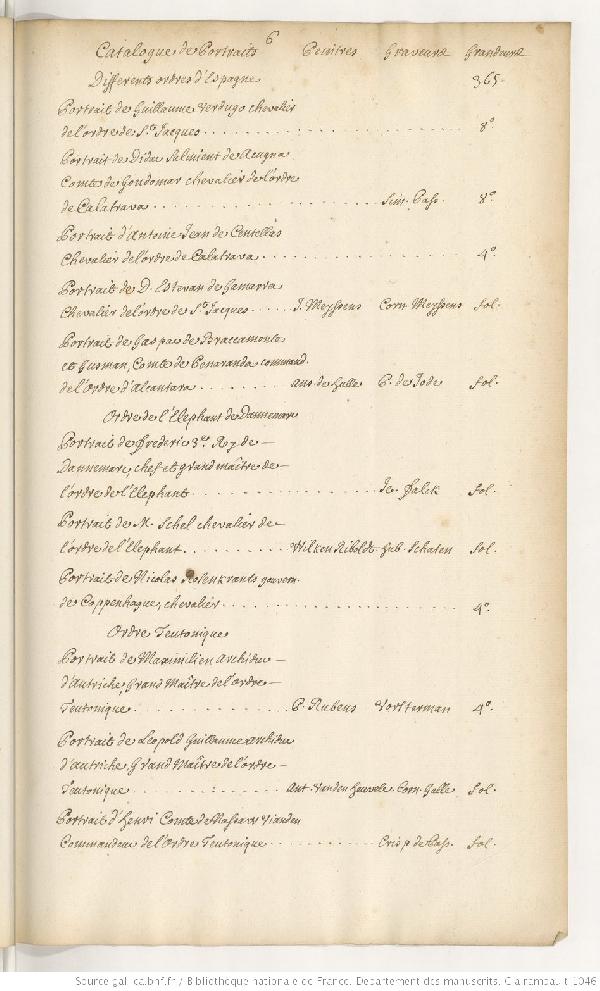 6
Catalogue de Portraits Peintres Graveurs Grandeurs
Differents ordres d'Espagne 365.
Portrait de Guillaume Verdugo chevalier
de l'ordre de St. Jacques . . . . . . . . . . 8°
Portrait de Didac Salmient de Acugna
Comte de Gondomar chevalier de l'ordre
de Calatrava . . . . . . . . . . Sim. Pass. 8°
Portrait d'Antoine Jean de Centellas
Chevalier de l'ordre de Calatrava . . . . . . . . . . 4°.
Portrait de D. Estevan de Gamarra
Chevalier de l'ordre de St. Jacques . . . . . J. Meyssens Corn. Meyssens fol.
Portrait de Gaspar de Braccamonte
et Gusman, Comte de Penaranda command.
de l'Ordre d'Alcantara . . . . . . . . Ans. de Halle P. de Jode fol.
Ordre de l'Elephant de Dannemarc
Portrait de Frederic 3e. Roy de —
Dannemarc, chef et grand maître de —
l'ordre de l'Elephant . . . . . . . . . . Je. Falck fol.
Portrait de M. Schel chevalier de —
l'ordre de l'Elephant . . . . . . . . . . Wilken Riboldt Hub. Schaten fol.
Portrait de Nicolas Rosenkrants gouvern.
de Coppenhague, chevalier . . . . . . . . . . 4°.
Ordre Teutonique
Portrait de Maximilien Archiduc —
d'Autriche, Grand Maître de l'ordre —
Teutonique . . . . . . . . . . P. Rubens Vorsterman 4°.
Portrait de Leopold Guillaume archiduc
d'autriche Grand Maître de l'ordre —
Teutonique . . . . . . . . . . Ant. Vanden Heuvele Corn. Galle fol.
Portrait d'Henri Comte de Nassau Vianden
Commandeur de l'Ordre Teutonique . . . . . . . . . . Crisp. de Pass. fol.
Source gallica.bnf.fr / Bibliothèque nationale de France. Département des manuscrits. Clairambault 1046